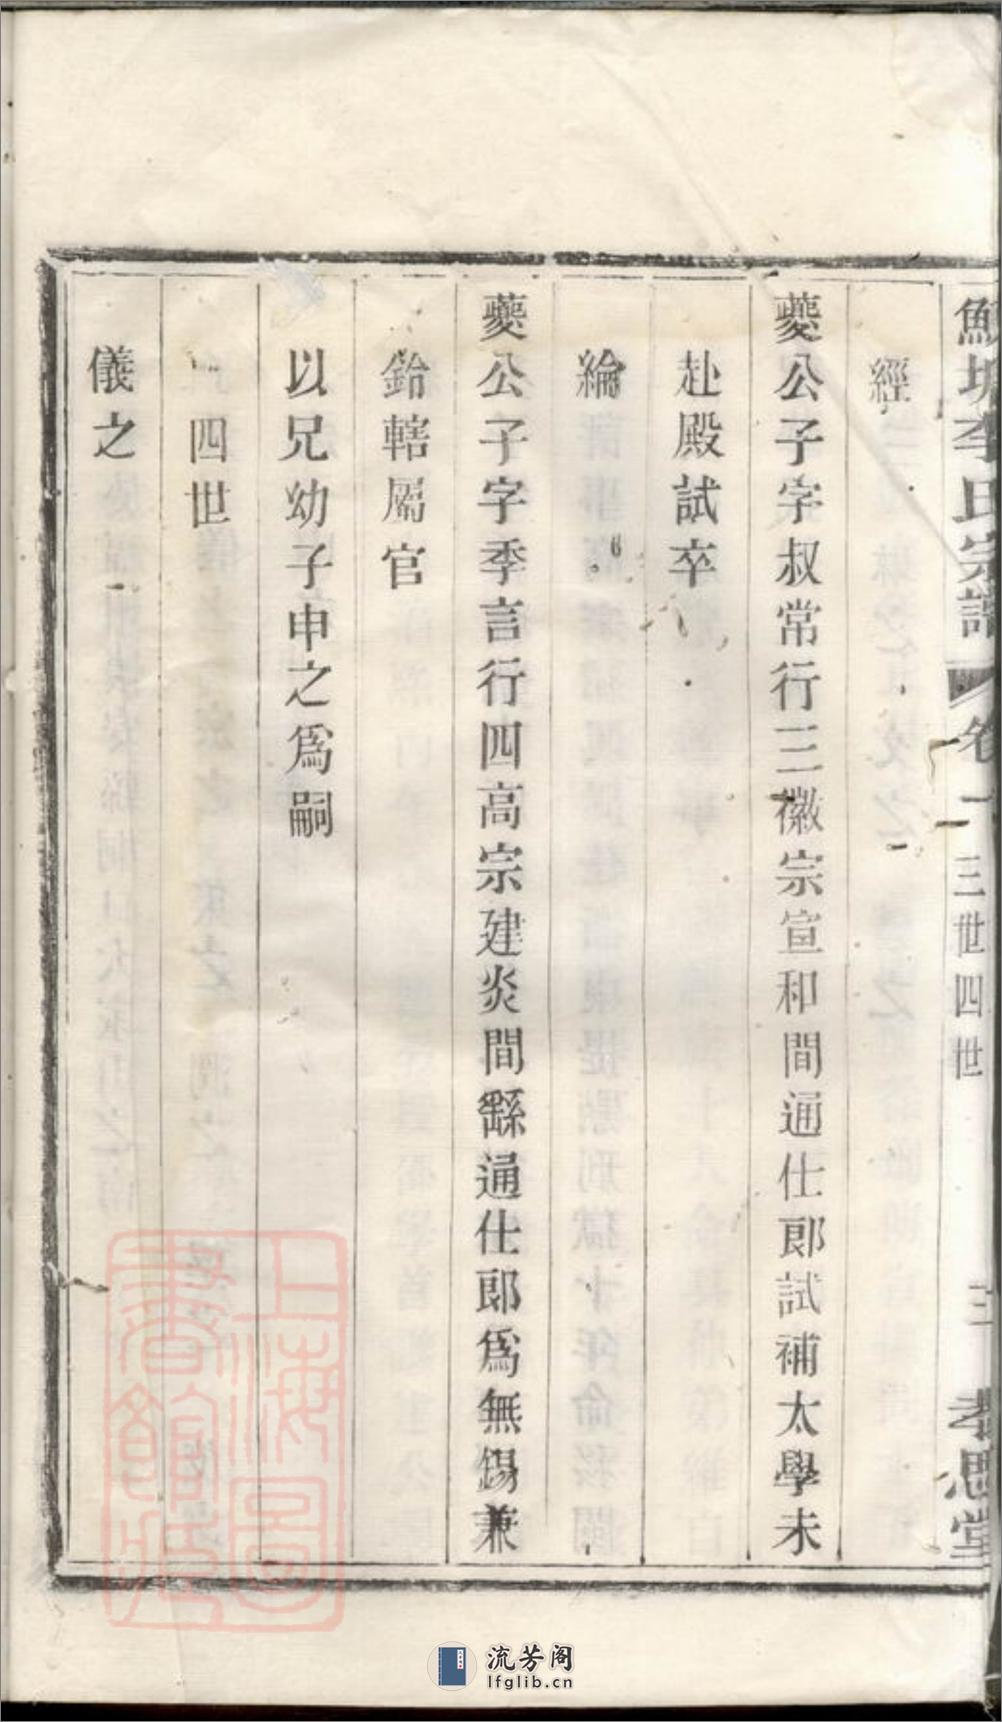 鮌塘李氏宗譜 卷一 三世四世 三 孝思堂
經
夔公子字叔常行三徽宗宣和間通仕郎試補太學未
赴殿試卒
綸
夔公子字季言行四高宗建炎間繇通仕郎為無錫兼
鈐轄屬官
以兄幼子申之為嗣
四世
儀之
上海圖書館藏
流芳阁
lfglib.cn